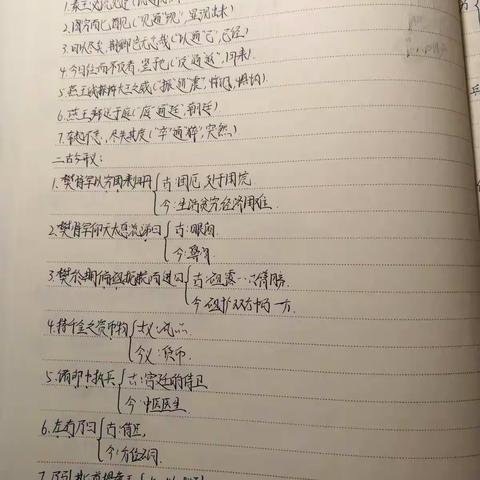 2.图穷而匕首见("见"通"现",呈现出来)
3.日以尽矣,荆卿岂无意哉("以"通"已",已经)
4.今日往而不反者,竖子也("反"通"返",回来)
5.燕王诚振怖大王之威("振"通"震",惧怕)
6.燕王拜送于庭("庭"通"廷",朝廷)
7.卒起不意,尽失其度("卒"通"猝",突然)
二.古今异义:
1.樊将军以穷困来归丹
古:困厄,处于困境
今:生活贫穷经济困难.
2.樊将军仰天太息流涕曰
古:眼泪
今:鼻涕
3.樊於期偏袒扼腕而进曰
古:袒露一只臂膀
今:袒护双方中的一方.
4.持千金之资币物
古义:礼品
今义:货币.
5.诸郎中执兵
古:宫廷的侍卫
今:中医医生
6.左右乃曰
古:侍臣,
今:方位不同.